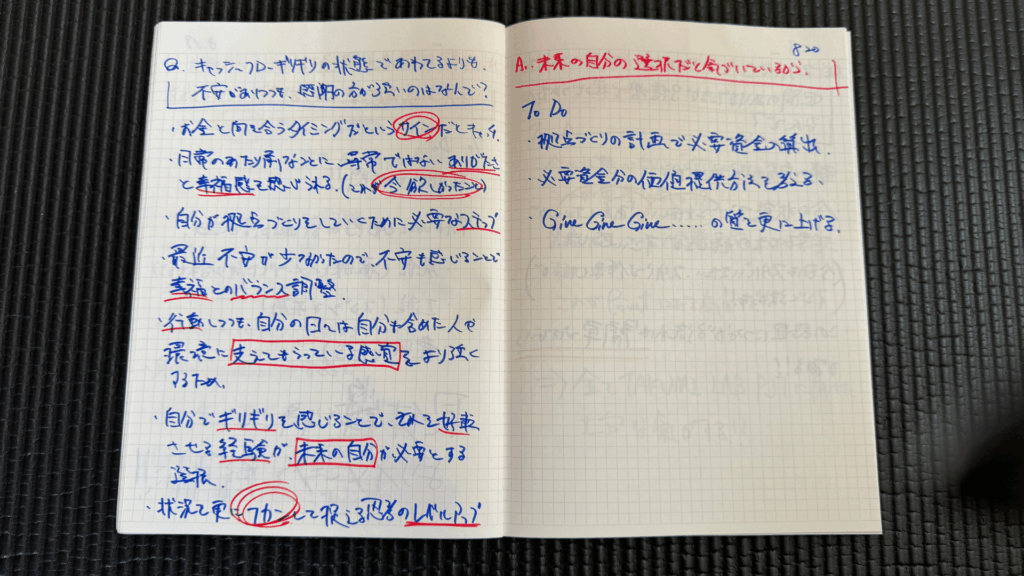 Q. キャッシュフローギリギリの状態であわてるよりも、
不安がありつつも、感謝の方が強いのはなんで?
・お金と向き合うタイミングだというサインだとキャッチ
・日常のあたり前なことに、尋常ではないありがたさ
と幸福感を感じられる。(これが今欲しかったこと)
・自分が拠点づくりをしていくために必要なステップ
・最近不安が少なかったので、不安を感じることで
幸福とのバランス調整。
・行動しつつも、自分の目には自分も含めた人や
環境に支えてもらっている感覚をより強く
するため。
・自分でギリギリを感じることで、それを好転
させる経験が、未来の自分が必要とする
選択。
・状況を更にフカンして捉える思考のレベルアップ
8.20
A. 未来の自分の選択だと気づいているから。
To Do
・拠点づくりの計画で必要資金の算出。
・必要資金分の価値提供方法を考える。
・Give Give Give......の質を更に上げる。